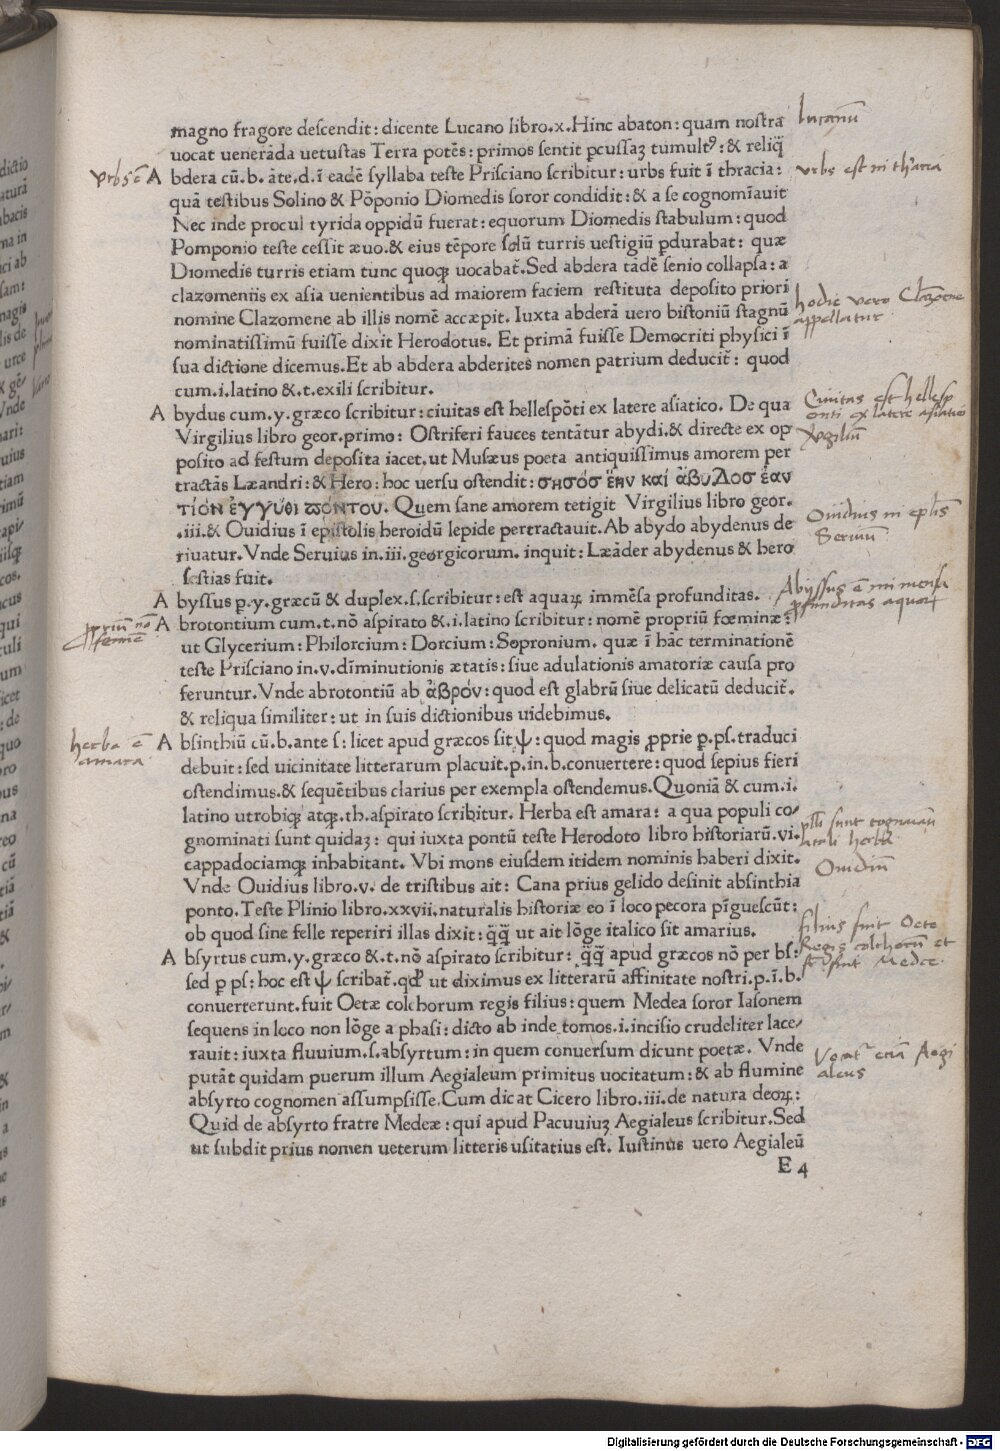 magno fragore descendit: dicente Lucano libro.x.Hinc abaton: quam nostra
uocat uenerāda uetustas Terra potēs: primos sentit pcussaꝫ tumultꝰ: & reliq̄
A bdera cū.b. āte.d.ī eadē syllaba teste Prisciano scribitur: urbs fuit ī thracia:
quā testibus Solino & Pōponio Diomedis soror condidit: & a se cognomīauit
Nec inde procul tyrida oppidū fuerat: equorum Diomedis stabulum: quod
Pomponio teste cessit æuo.& eius tēpore solū turris uestigiū pdurabat: quæ
Diomedis turris etiam tunc quoqꝫ uocabat̄.Sed abdera tādē senio collapsa: a
clazomeniis ex asia uenientibus ad maiorem faciem restituta deposito priori
nomine Clazomene ab illis nomē accæpit. Iuxta abderā uero bistoniū stagnū
nominatissimū fuisse dixit Herodotus. Et primā fuisse Democriti physici ī
sua dictione dicemus.Et ab abdera abderites nomen patrium deducit̄: quod
cum.i.latino &.t.exili scribitur.
A bydus cum.y.græco scribitur: ciuitas est hellespōti ex latere asiatico. De qua
Virgilius libro geor.primo: Ostriferi fauces tentātur abydi.& directe ex op
posito ad festum deposita iacet.ut Musæus poeta antiquissimus amorem per
tractās Læandri: & Hero: hoc uersu ostendit: σησόσ ἔην καί ἀβυΔοσ ἐαν
τίόν ἐγγύθι ϖόντου. Quem sane amorem tetigit Virgilius libro geor.
.iii.& Ouidius ī epistolis heroidū lepide pertractauit.Ab abydo abydenus de
riuatur. Vnde Seruius in.iii.georgicorum. inquit: Læāder abydenus & hero
sestias fuit.
A byssus p.y.græcū & duplex.s.scribitur: est aquaꝝ immēsa profunditas.
A brotontium cum.t.nō aspirato &.i.latino scribitur: nomē propriū fœminæ:
ut Glycerium: Philorcium: Dorcium: Sopronium. quæ ī hāc terminationē
teste Prisciano in.v.dīminutionis ætatis: siue adulationis amatoriæ causa pro
feruntur.Vnde abrotontiū ab ἀβρόν: quod est glabrū siue delicatū deducit̄.
& reliqua similiter: ut in suis dictionibus uidebimus.
A bsinthiū cū.b.ante s: licet apud græcos sit ψ: quod magis ꝓprie p.ps.traduci
debuit: sed uicinitate litterarum placuit.p.in.b.conuertere: quod sepius fieri
ostendimus.& sequētibus clarius per exempla ostendemus.Quoniā & cum.i.
latino utrobiqꝫ atqꝫ.th.aspirato scribitur. Herba est amara: a qua populi co⸗
gnominati sunt quidaꝫ: qui iuxta pontū teste Herodoto libro historiarū.vi.
cappadociamqꝫ inhabitant. Vbi mons eiusdem itidem nominis haberi dixit.
Vnde Ouidius libro.v. de tristibus ait: Cana prius gelido desinit absinthia
ponto.Teste Plinio libro.xxvii.naturalis historiæ eo ī loco pecora pīguescūt:
ob quod sine felle reperiri illas dixit: q̄q̄ ut ait lōge italico sit amarius.
A bsyrtus cum.y.græco &.t.nō aspirato scribitur: q̄q̄ apud græcos nō per bs:
sed p ps: hoc est ψ scribat̄.qđ ut diximus ex litterarū affinitate nostri.p.ī.b.
conuerterunt.fuit Oetæ colchorum regis filius: quem Medea soror Iasonem
sequens in loco non lōge a phasi: dicto ab inde tomos.i.incisio crudeliter lace⸗
rauit: iuxta fluuium.s.absyrtum: in quem conuersum dicunt poetæ. Vnde
putāt quidam puerum illum Aegialeum primitus uocitatum: & ab flumine
absyrto cognomen assumpsisse.Cum dicat Cicero libro.iii.de natura deoꝝ:
Quid de absyrto fratre Medeæ: qui apud Pacuuiuꝫ Aegialeus scribitur.Sed
ut subdit prius nomen ueterum litteris usitatius est. Iustinus uero Aegialeū
E 4
lucanū
vrbs ē
vrbs est in thracia
hodie vero Clazomene
appellatur
Ciuitas est hellesp
onti ex latere asiatico
Virgiliū
Ouidius in eplis
Seruiū
Abyssus ē immensa
profunditas aquaꝝ
ꝓpriū nō
femine
herba ē
amara
Ouidiū
filius fuit Oete
Regis colchorū et
Vocatr etiā Aegi
aleus
Digitalisierung gefördert durch die Deutsche Forschungsgemeinschaft - DFG